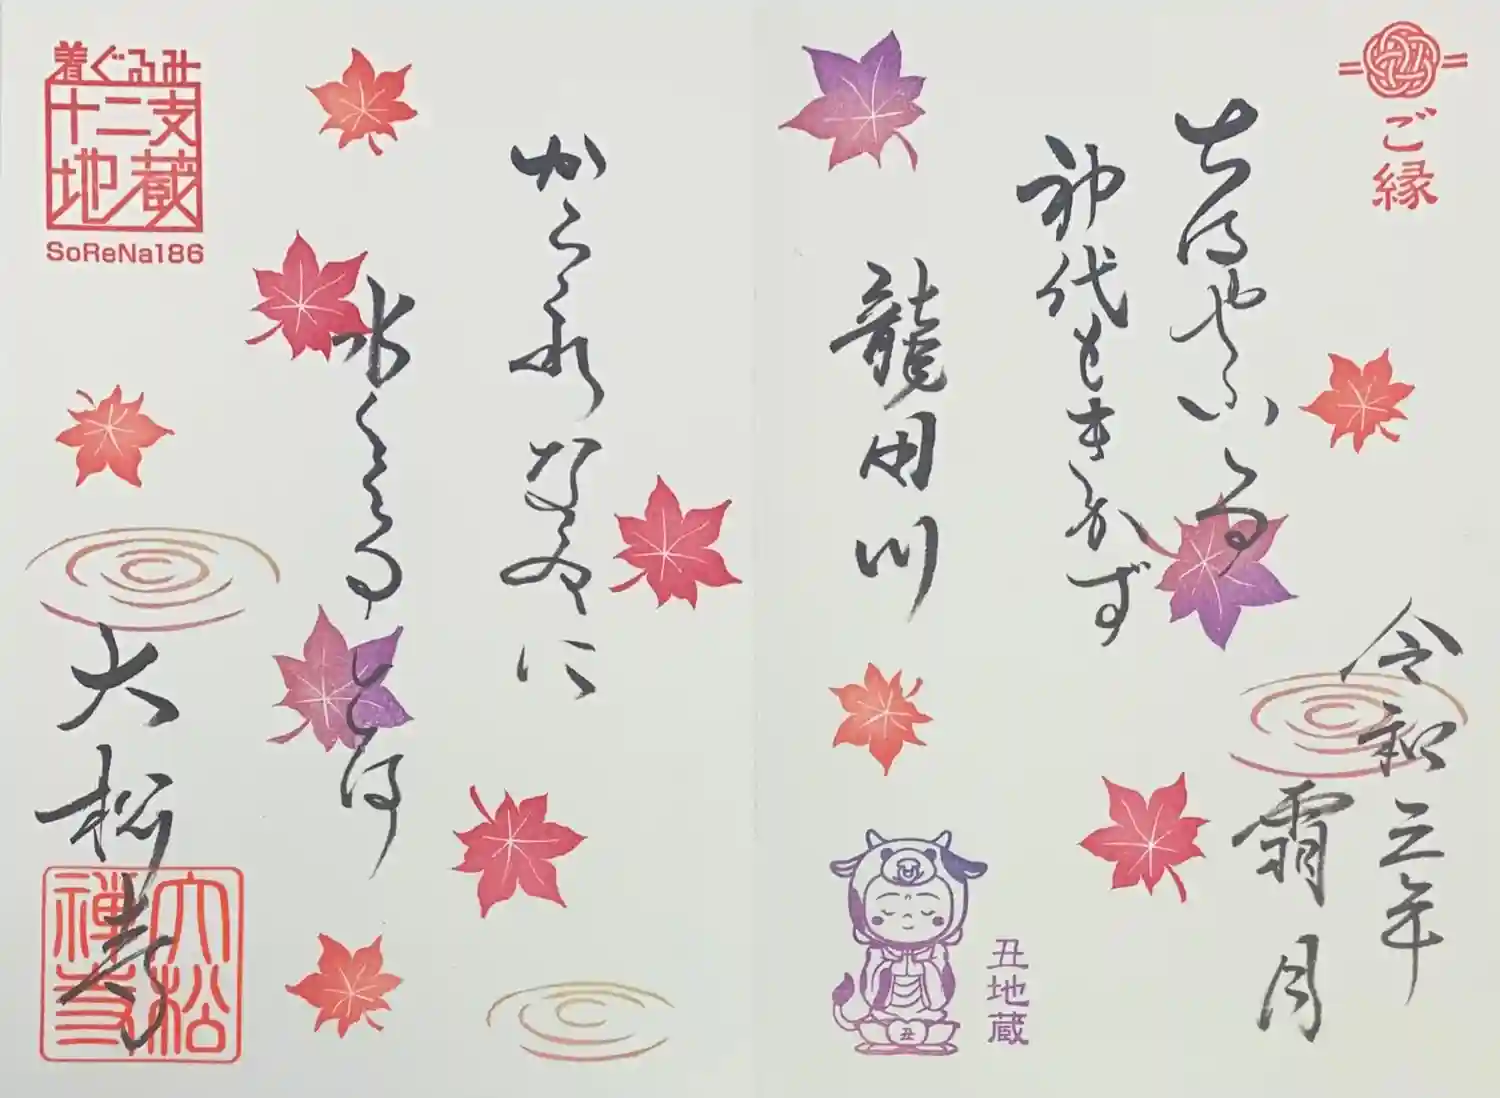 ご縁
令和三年
霜月
ちはやふる
神代もきかず
龍田川
丑
丑地蔵
からくれなゐに
水くくるとは
着ぐるみ
十二支
地蔵
SoReNa186
大松寺
大松
禅寺